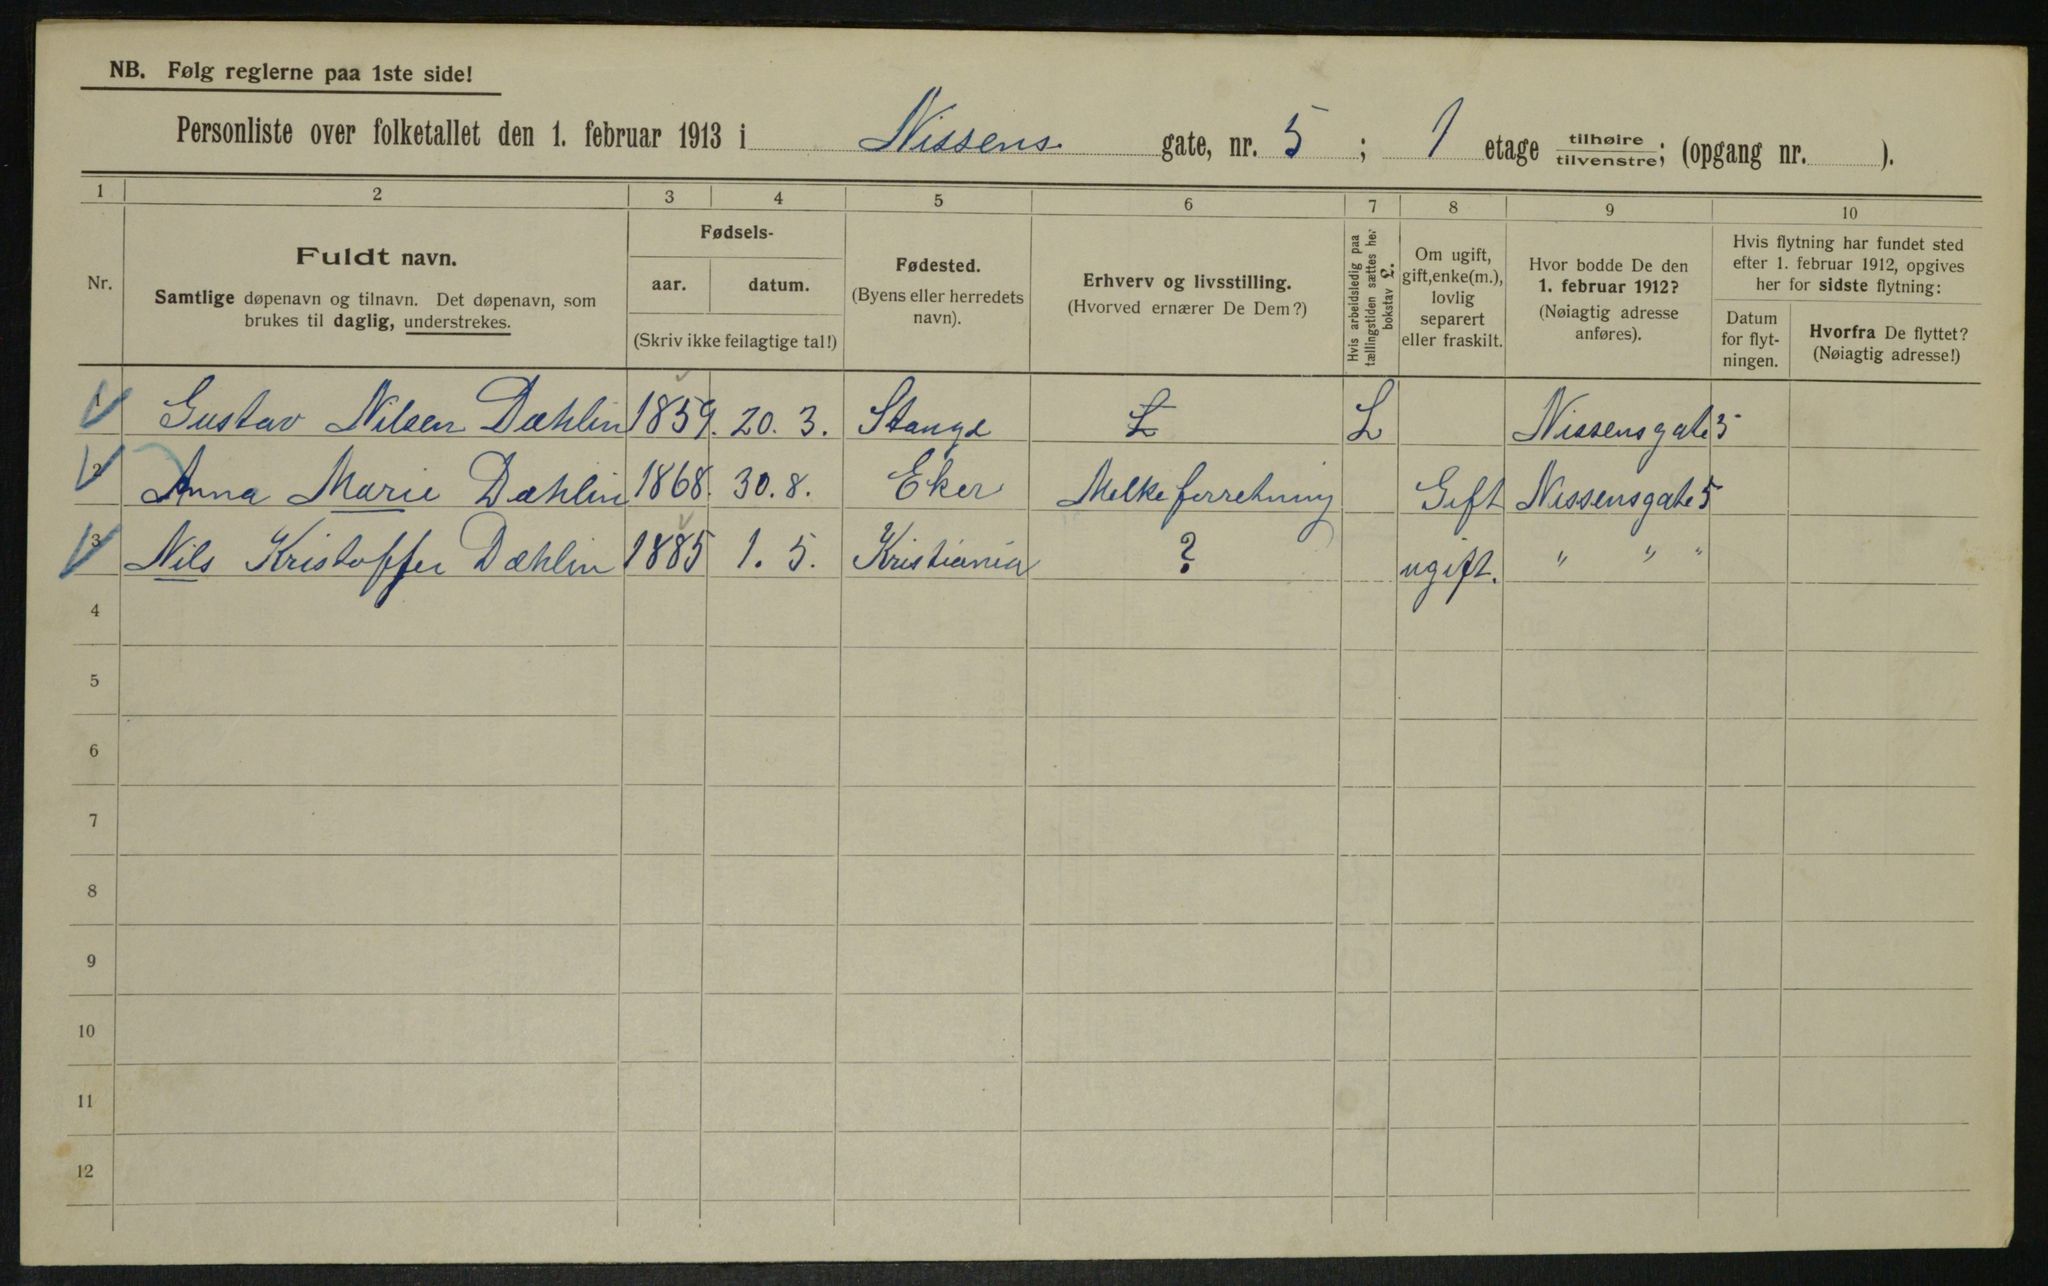 NB. Følg reglerne paa 1ste side!
Personliste over folketallet den 1. februar 1913 i Nissens gate, nr. 5; 1 etage tilhøire / tilvenstre; (opgang nr. ).
1 2 3 4 5 6 7 8 9 10
Nr.
Fuldt navn.
Samtlige døpenavn og tilnavn. Det døpenavn, som
brukes til daglig, understrekes.
Fødsels-
aar. datum.
(Skriv ikke feilagtige tal!)
Fødested.
(Byens eller herredets
navn).
Erhverv og livsstilling.
(Hvorved ernærer De Dem?)
Hvis arbeidsledig paa
tællingstiden sættes her
bokstav L.
Om ugift,
gift, enke(m.),
lovlig
separert
eller fraskilt.
Hvor bodde De den
1. februar 1912?
(Nøiagtig adresse
anføres).
Hvis flytning har fundet sted
efter 1. februar 1912, opgives
her for sidste flytning:
Datum
for flyt-
ningen.
Hvorfra De flyttet?
(Nøiagtig adresse!)
1 Gustav Nilsen Dæhlin 1859. 20. 3. Stange L L Nissensgate 5
2 Anna Marie Dæhlin 1868. 30. 8. Eker Melkeforretning Gift Nissensgate 5
3 Nils Kristoffer Dæhlin 1885 1. 5. Kristiania ? ugift. " " "
4
5
6
7
8
9
10
11
12